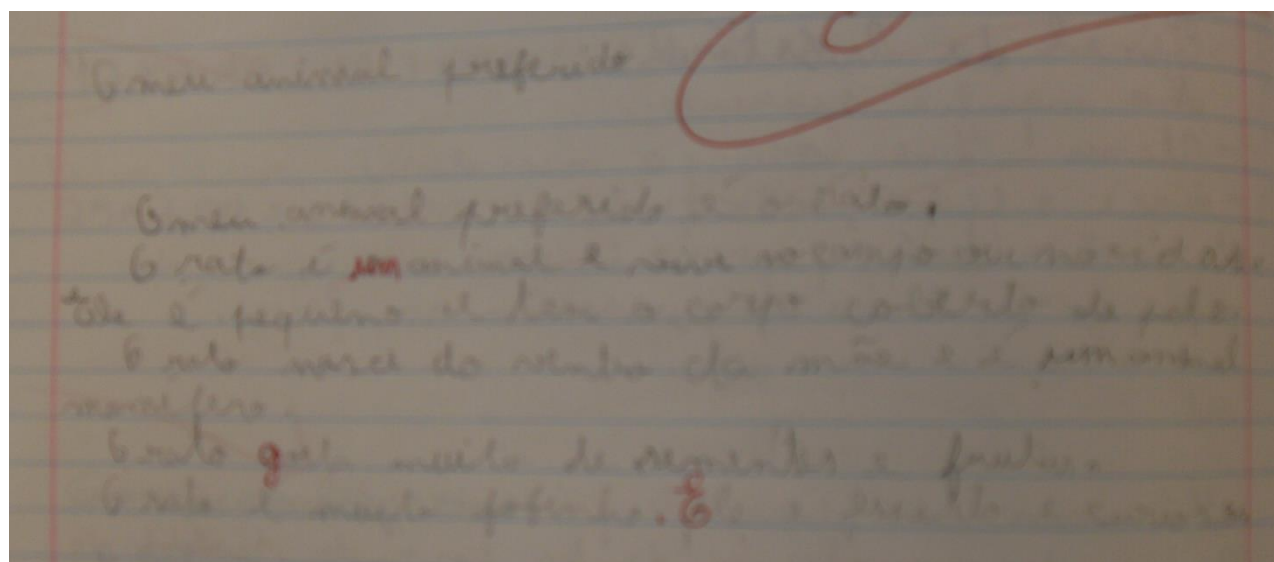 O meu animal preferido
O meu animal preferido é o rato.
O rato é um animal e vive no campo ou na cidade
Ele é pequeno e tem o corpo coberto de pelo.
O rato nasce do ventre da mãe e é um animal
mamífero.
O rato gosta muito de sementes e frutas.
O rato é muito fofinho. Ele é esperto e curioso